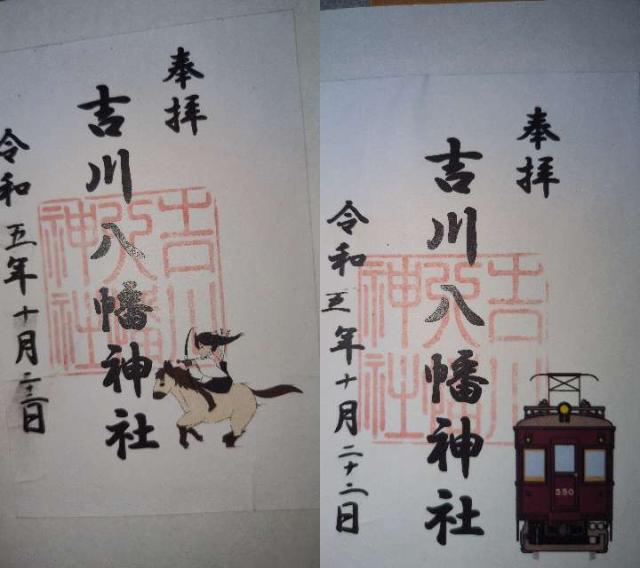 奉拝
吉川八幡神社
令和五年十月二十二日
吉川八幡神社
奉拝
吉川八幡神社
令和五年十月二十二日
吉川八幡神社
550